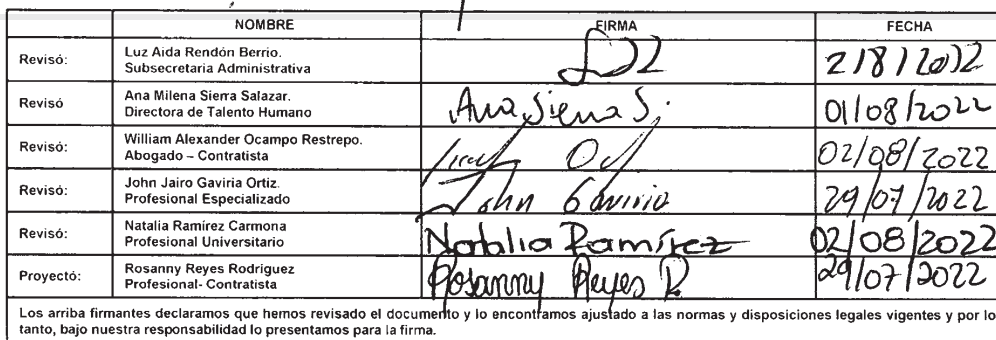 NOMBRE FIRMA FECHA
Revisó: Luz Aida Rendón Berrio.
Subsecretaria Administrativa 2/8/2022
Revisó Ana Milena Sierra Salazar.
Directora de Talento Humano Ana Sierra S. 01/08/2022
Revisó: William Alexander Ocampo Restrepo.
Abogado – Contratista 02/08/2022
Revisó: John Jairo Gaviria Ortiz.
Profesional Especializado John Gaviria 29/07/2022
Revisó: Natalia Ramírez Carmona
Profesional Universitario Natalia Ramírez 02/08/2022
Proyectó: Rosanny Reyes Rodríguez
Profesional- Contratista Rosanny Reyes R 29/07/2022
Los arriba firmantes declaramos que hemos revisado el documento y lo encontramos ajustado a las normas y disposiciones legales vigentes y por lo
tanto, bajo nuestra responsabilidad lo presentamos para la firma.